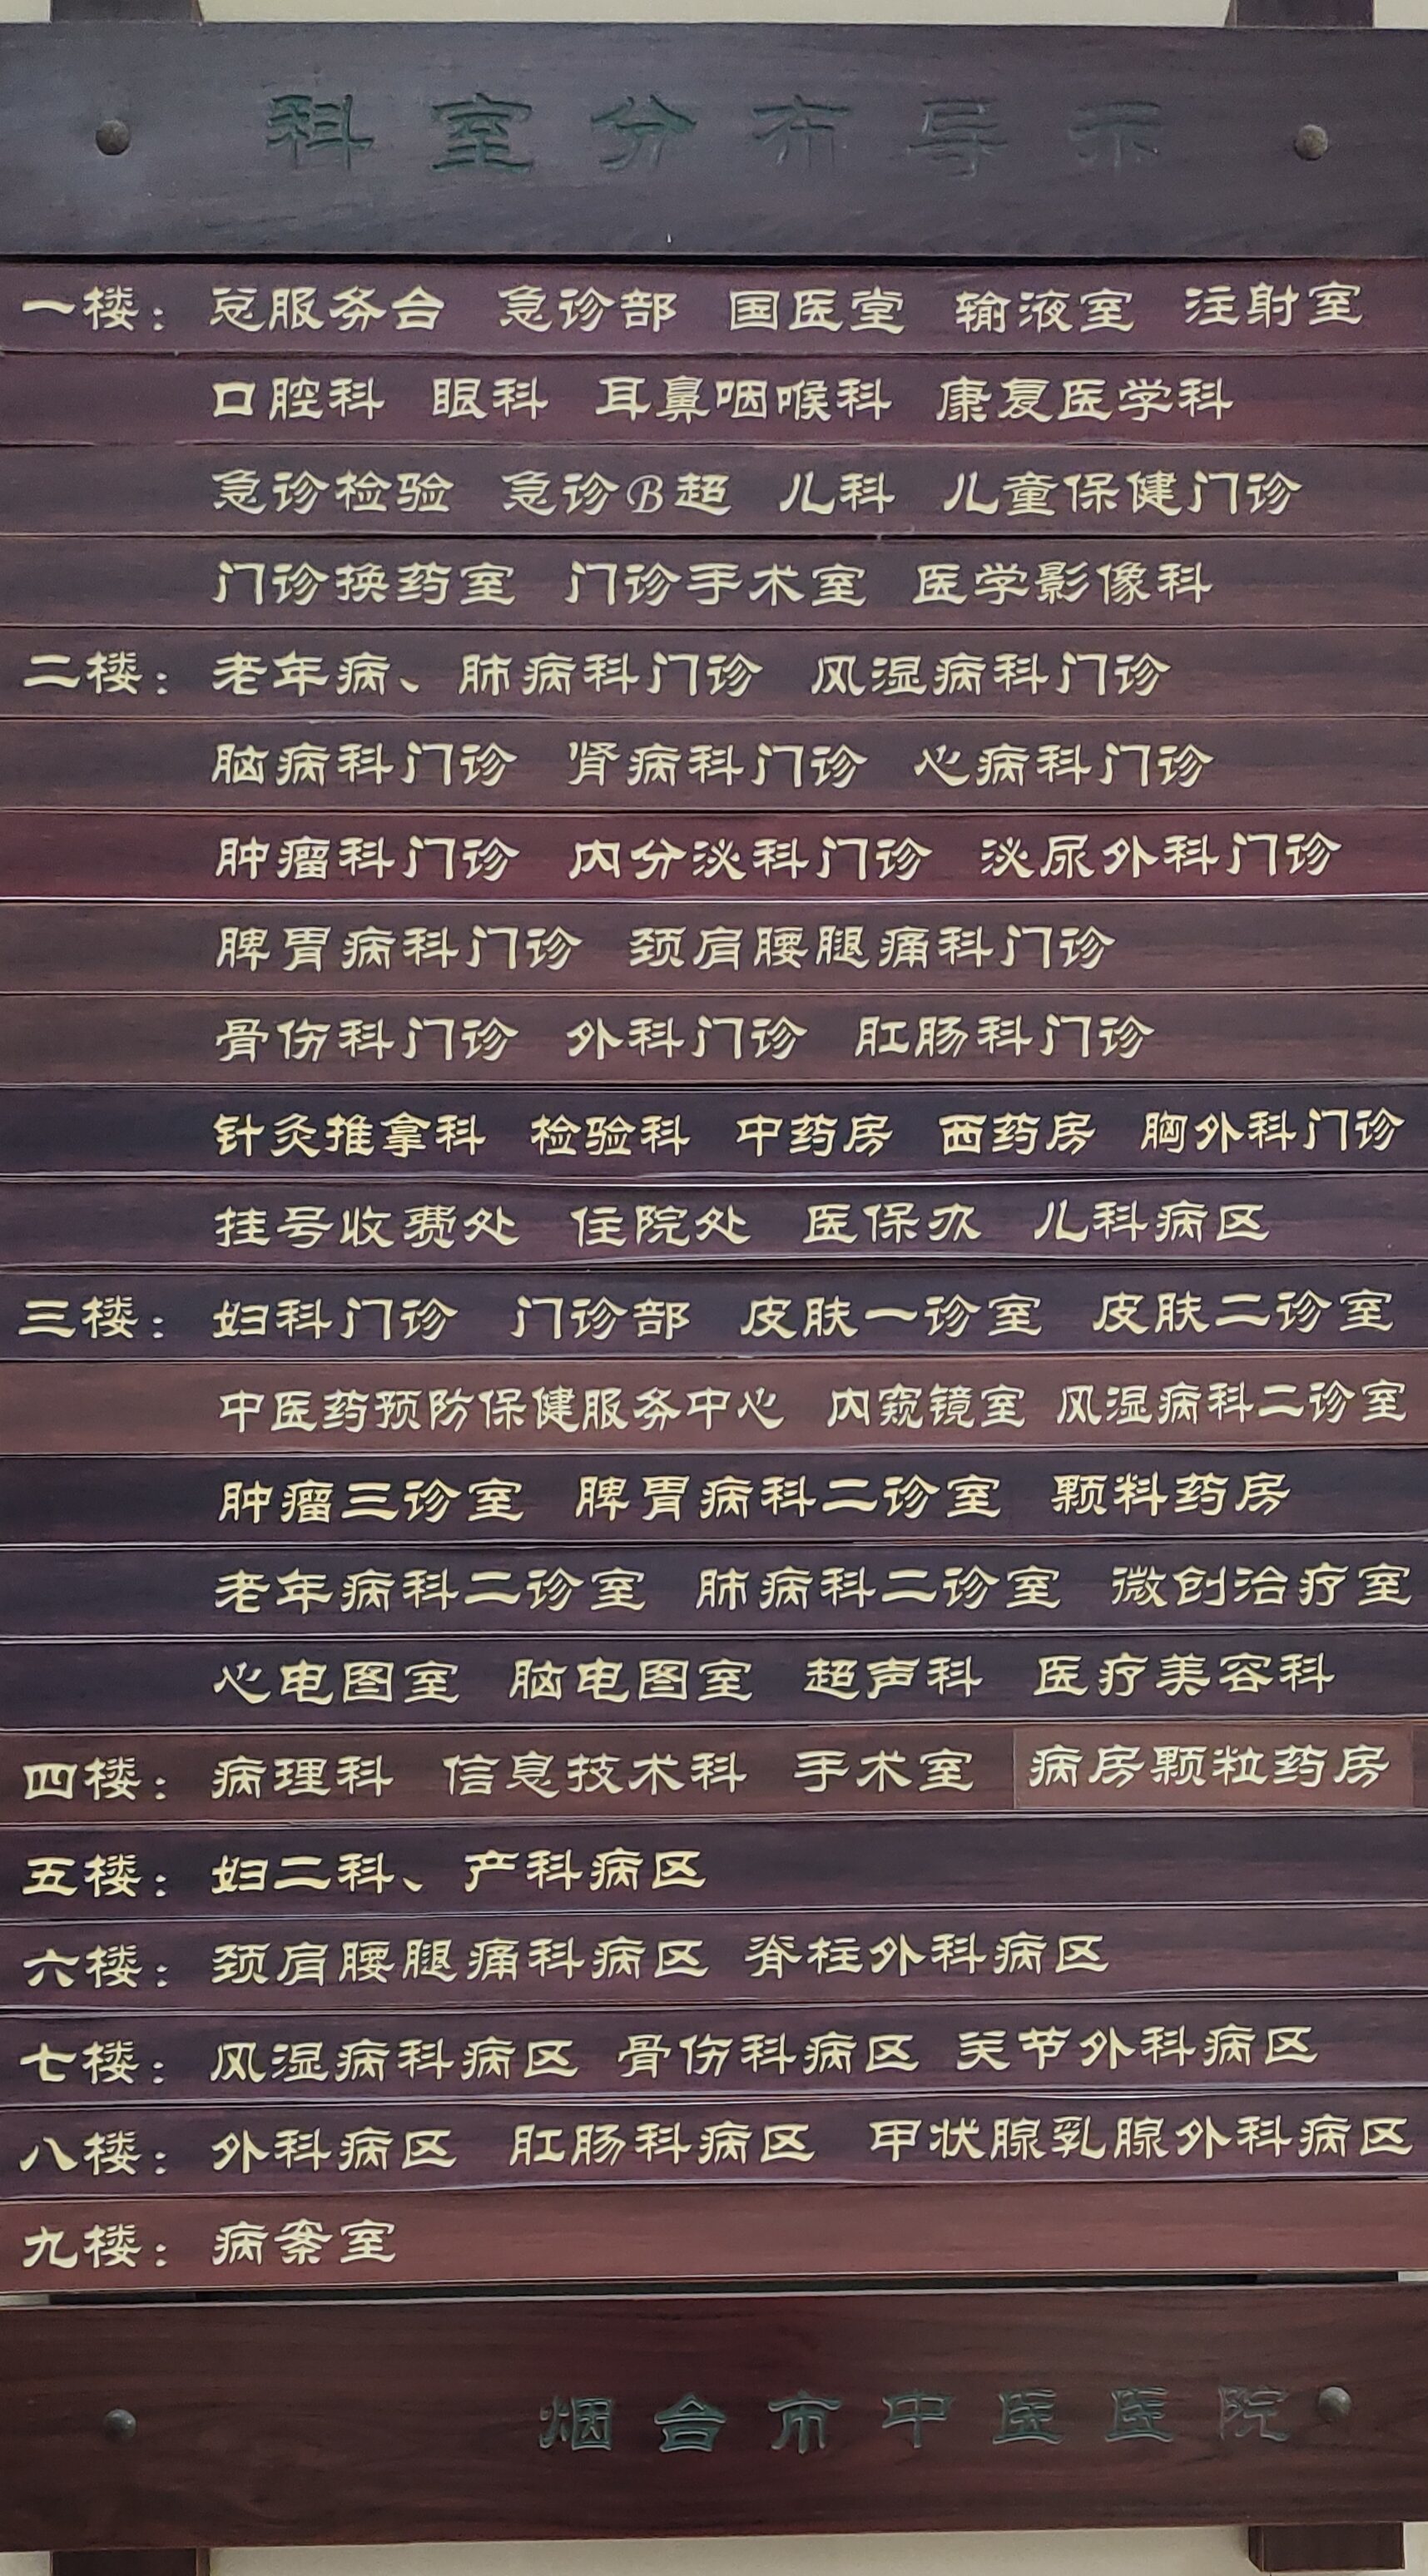 科室分布导示
一楼：总服务台 急诊部 国医堂 输液室 注射室
口腔科 眼科 耳鼻咽喉科 康复医学科
急诊检验 急诊B超 儿科 儿童保健门诊
门诊换药室 门诊手术室 医学影像科
二楼：老年病、肺病科门诊 风湿病科门诊
脑病科门诊 肾病科门诊 心病科门诊
肿瘤科门诊 内分泌科门诊 泌尿外科门诊
脾胃病科门诊 颈肩腰腿痛科门诊
骨伤科门诊 外科门诊 肛肠科门诊
针灸推拿科 检验科 中药房 西药房 胸外科门诊
挂号收费处 住院处 医保办 儿科病区
三楼：妇科门诊 门诊部 皮肤一诊室 皮肤二诊室
中医药预防保健服务中心 内窥镜室 风湿病科二诊室
肿瘤三诊室 脾胃病科二诊室 颗料药房
老年病科二诊室 肺病科二诊室 微创治疗室
心电图室 脑电图室 超声科 医疗美容科
四楼：病理科 信息技术科 手术室 病房颗粒药房
五楼：妇二科、产科病区
六楼：颈肩腰腿痛科病区 脊柱外科病区
七楼：风湿病科病区 骨伤科病区 关节外科病区
八楼：外科病区 肛肠科病区 甲状腺乳腺外科病区
九楼：病案室
烟台市中医医院